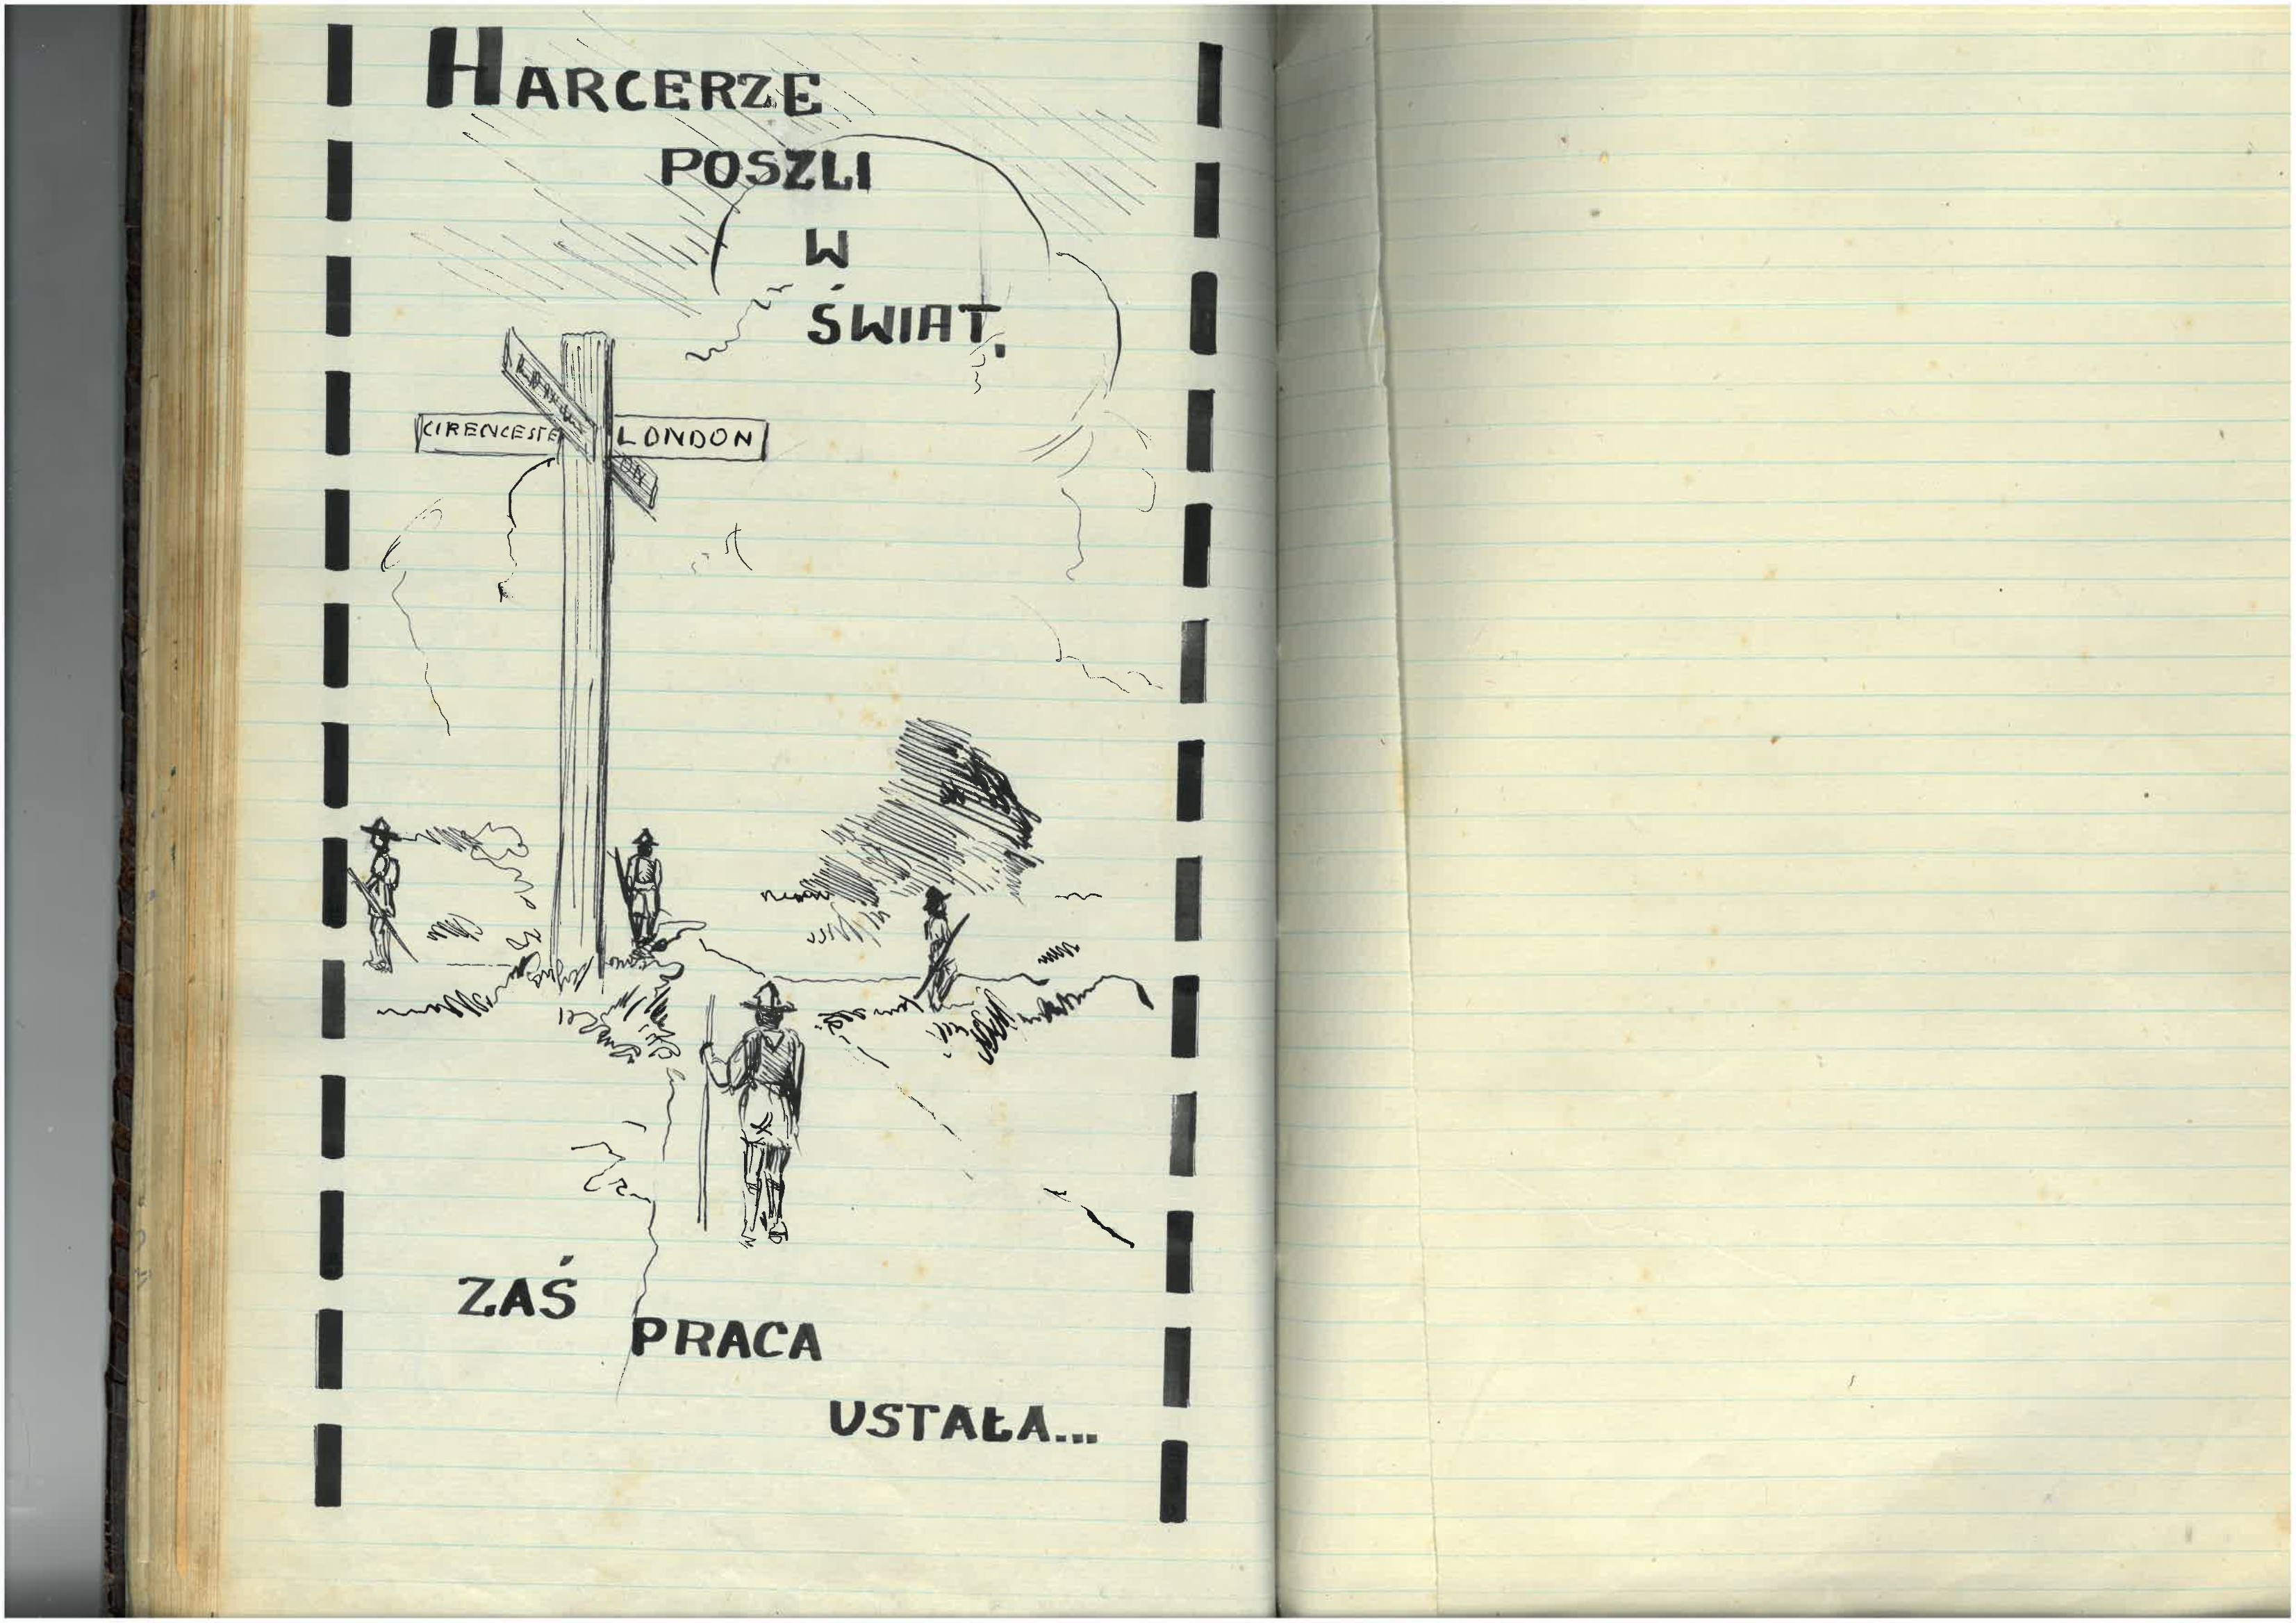 HARCERZE
POSZLI
W
ŚWIAT.
CIRENCESTE
LONDON
ON
ZAŚ
PRACA
USTAŁA...